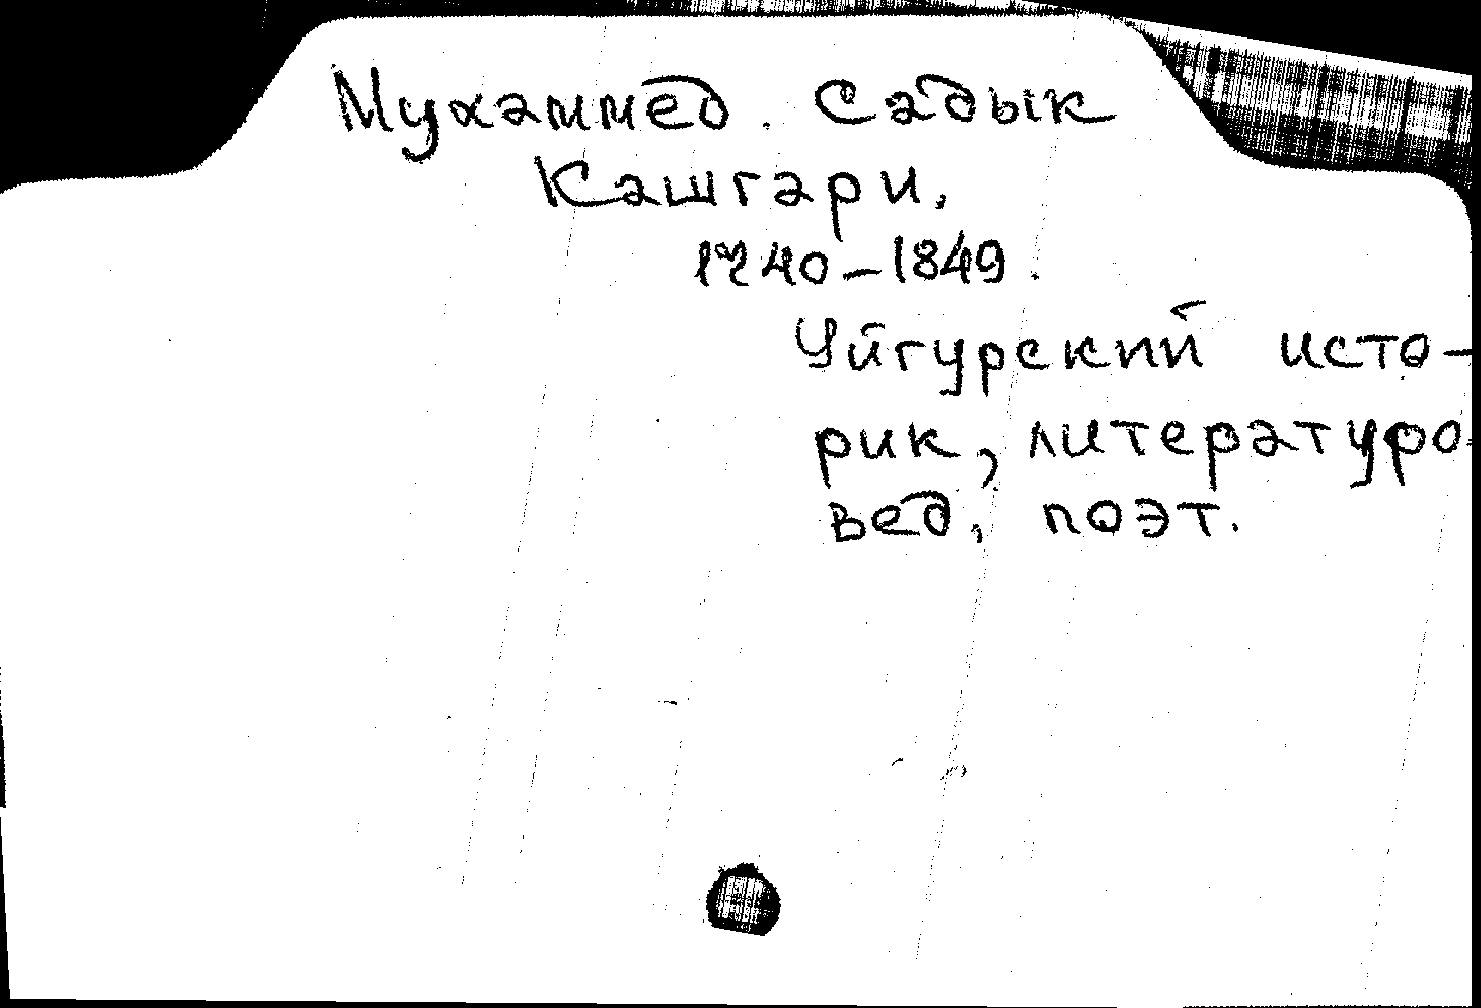 Мухаммед Садык
Кашгари,
1740–1849.
Уйгурский исто-
рик, литературо-
вед, поэт.